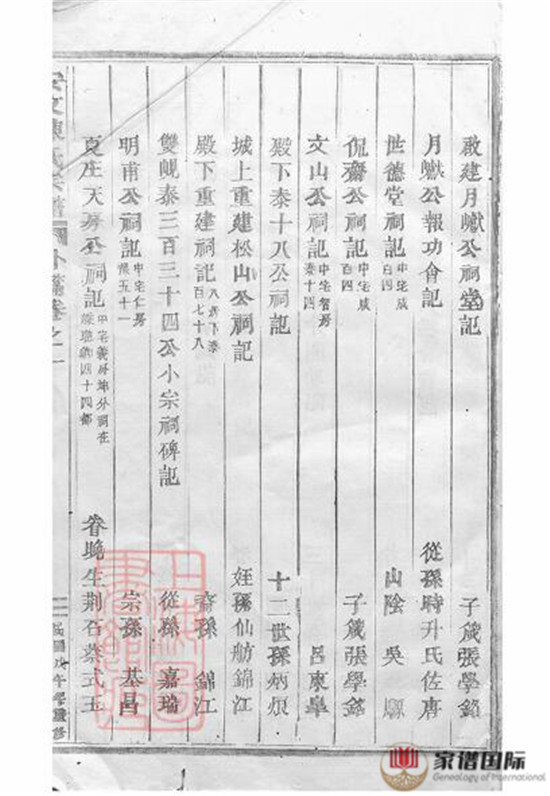 啟建月巘公祠堂記 子箴張學銘
月巘公報功會記 從孫時升氏佐唐
世德堂祠記 中宅成 百四 山陰吳
侃齋公祠記 中宅成 百四 子箴張學銘
文山公祠記 中宅智房 泰十四 呂東臯
殿下泰十八公祠記 十二世孫炳烺
城上重建松山公祠記 姪孫仙舫錦江
殿下重建祠記 百七十八 裔孫錦江
雙峴泰三百三十四公小宗祠碑記 從孫嘉瑞
明甫公祠記 中宅仁房 五十一 宗孫基昌
夏庄天房公祠記 中宅義房 分祠在 四十四都 眷晚生荆石蔡式玉
陳氏宗譜 外篇卷之一 二 民國戊午季重修
家谱国际
Genealogy of International